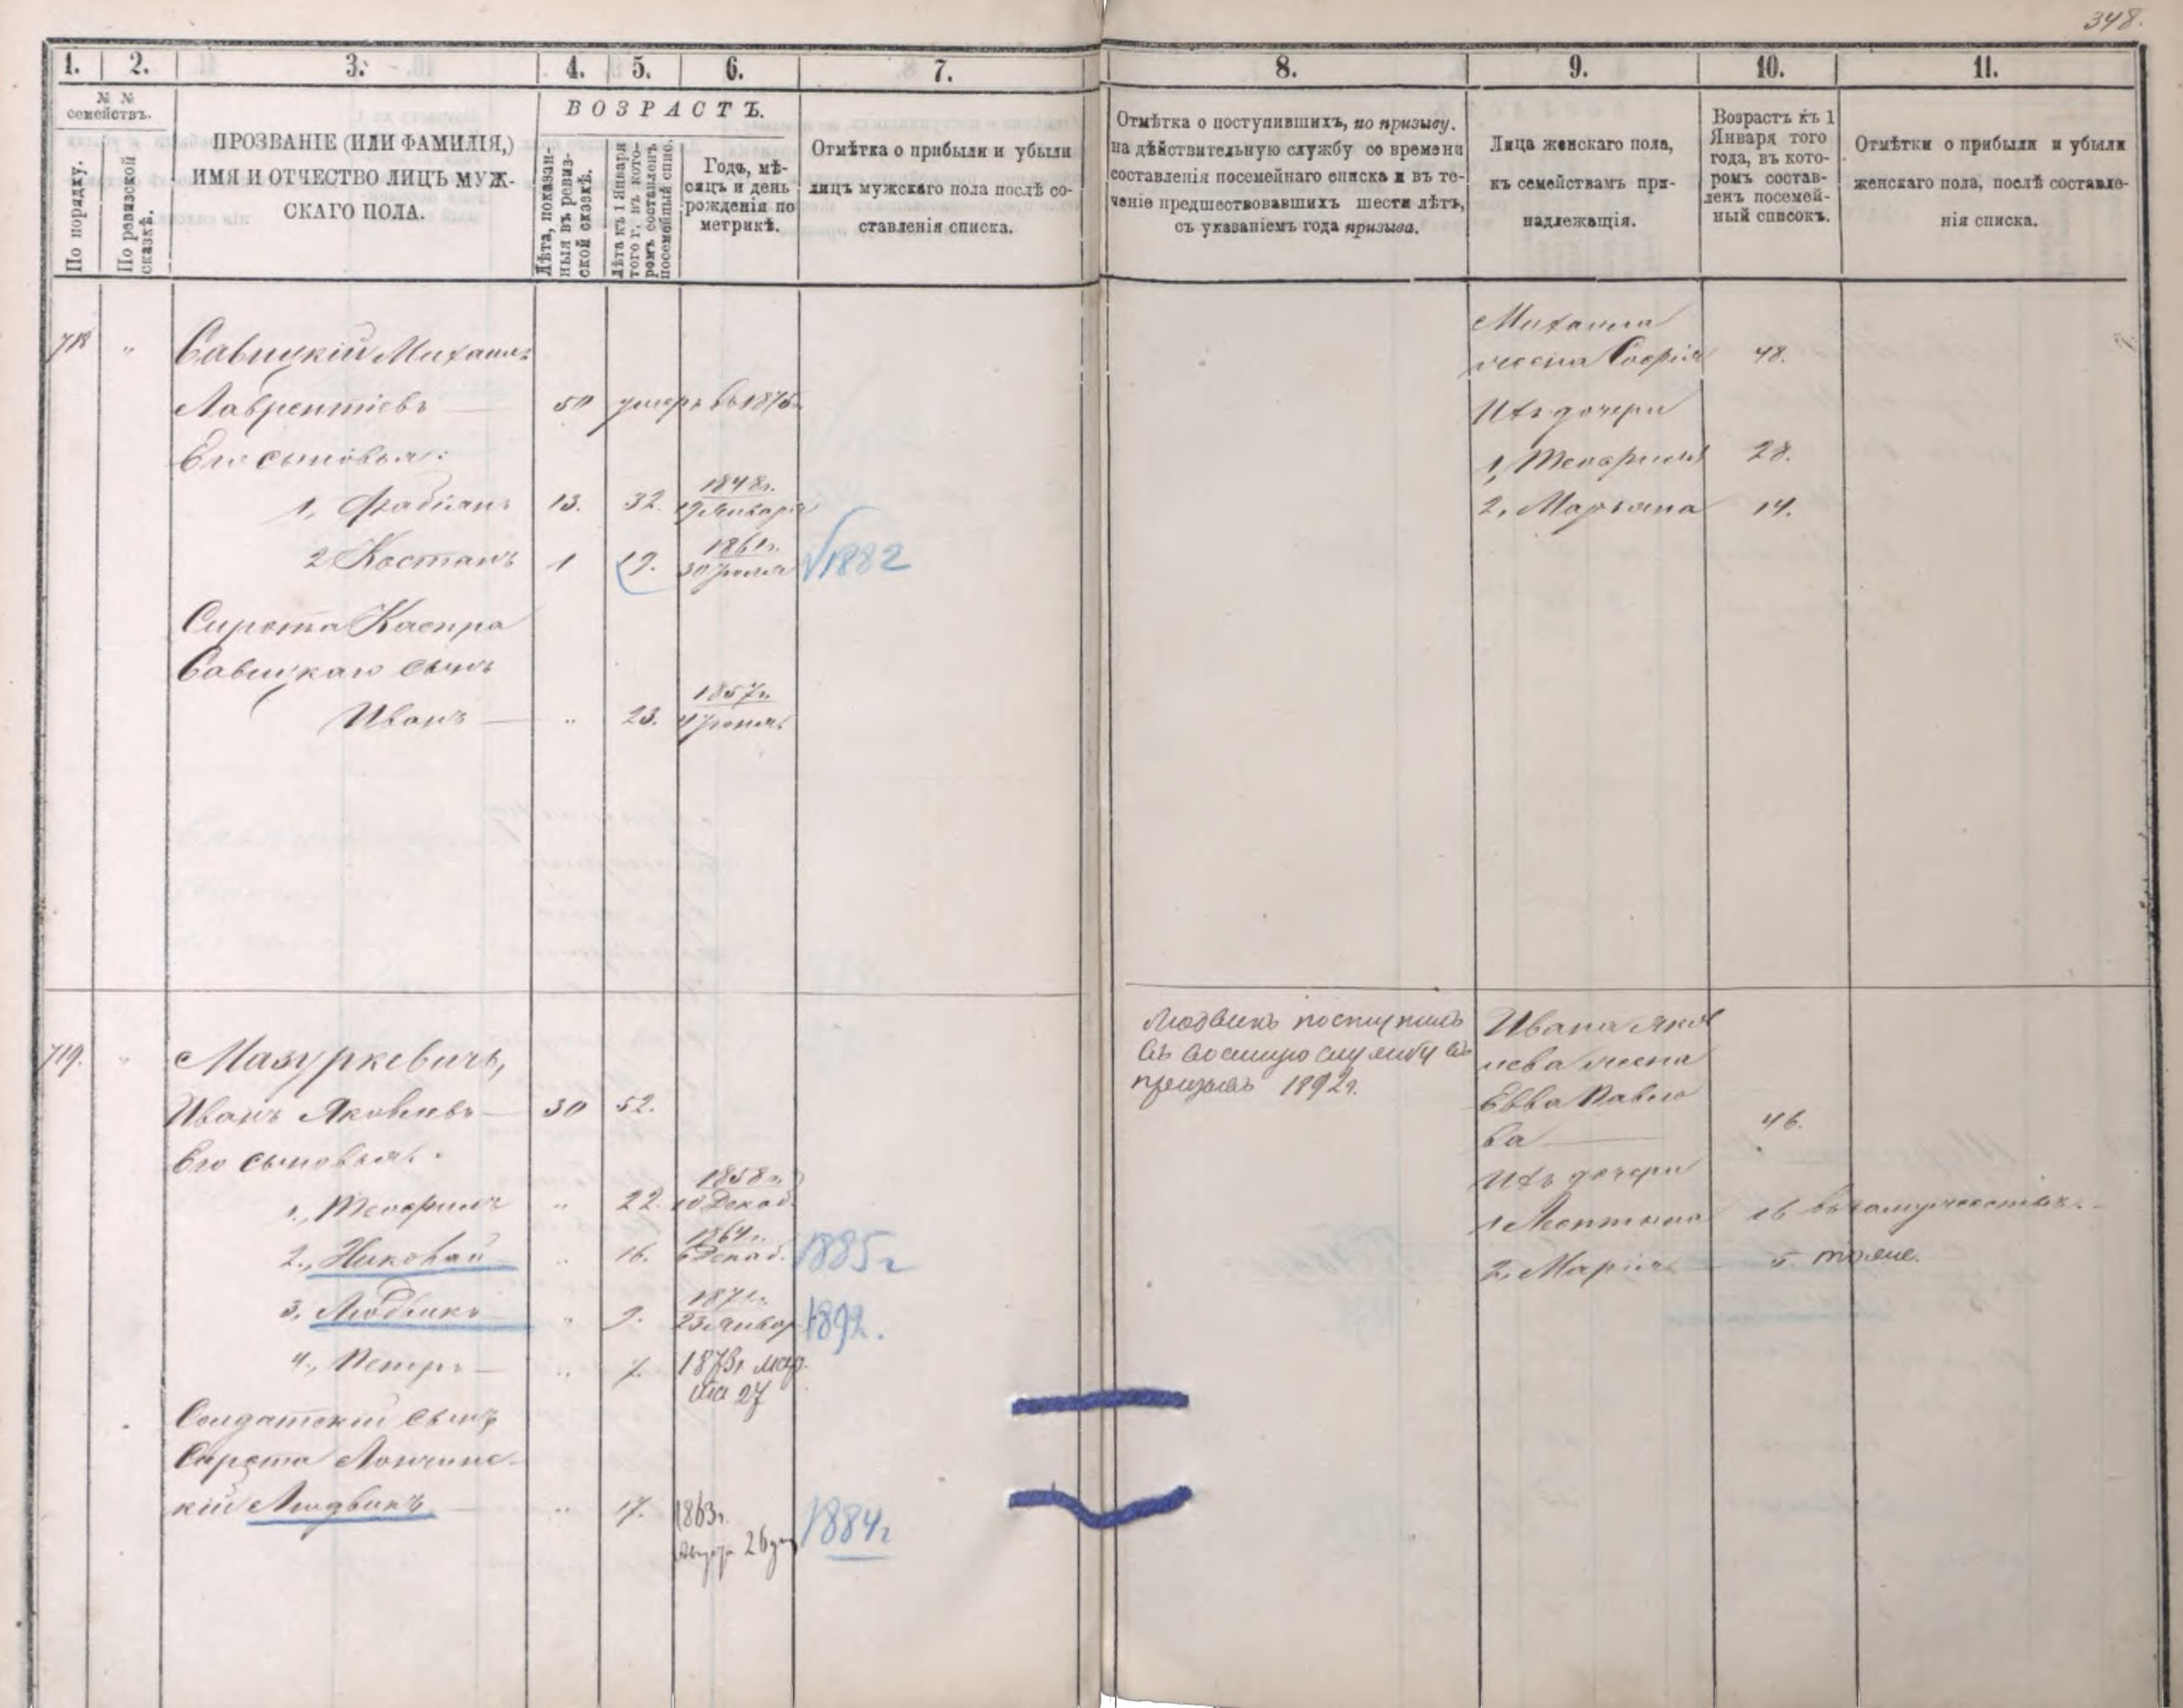 348.
1. 2. 3. 4. 5. 6. 7. 8. 9. 10. 11.
№ №
семействъ.
По порядку.
По ревизской
сказкѣ.
ПРОЗВАНІЕ (ИЛИ ФАМИЛІЯ,)
ИМЯ И ОТЧЕСТВО ЛИЦЪ МУЖ-
СКАГО ПОЛА.
ВОЗРАСТЪ.
Лѣта, показан-
ныя въ ревиз-
ской сказкѣ.
Лѣта къ 1 Января
того г. въ кото-
ромъ составленъ
посемейный спис.
Годъ, мѣ-
сяцъ и день
рожденія по
метрикѣ.
Отмѣтка о прибыли и убыли
лицъ мужскаго пола послѣ со-
ставленія списка.
Отмѣтка о поступившихъ, по призыву.
на дѣйствительную службу со времени
составленія посемейнаго списка и въ те-
ченіе предшествовавшихъ шести лѣтъ,
съ указаніемъ года призыва.
Лица женскаго пола,
къ семействамъ при-
надлежащія.
Возрастъ къ 1
Января того
года, въ кото-
ромъ состав-
ленъ посемей-
ный списокъ.
Отмѣтки о прибыли и убыли
женскаго пола, послѣ составле-
нія списка.
718 " Савицкій Михаилъ
Лаврентіевъ — 50 умеръ въ 1876
Его сыновья:
1, Фабіянъ 13. 32. 1848г.
19 Января
2 Костанъ 1 19. 1861г.
30 √1882
Сирота Каспра
Савицкаго сынъ
Иванъ — " 23. 1857г.
4
Михаила
жена Софія 48.
Ихъ дочери
1, Теофиля 28.
2, Марьяна 14.
719. " Мазуркевичъ,
Иванъ Яковлевъ — 30 52.
Его сыновья:
1., Теофилъ " 22. 1858г.
10 Декаб.
2., Николай " 16. 1864г.
6 Декаб. 1885г
3, Людвикъ " 9. 1871г.
23 Январ 1892.
4., Петръ — " 7. 1873г. мар
та 27
Солдатскій сынъ
Сирота Лончинс-
кій Людвикъ — " 17. 1863г.
26 1884г
Людвикъ поступилъ
въ военную службу въ
призывъ 1892г.
Ивана Яков
лева жена
Евва Павло
ва — 46.
Ихъ дочери
1 Леонтина 16 въ замужествѣ. -
2, Марія — 5. тоже.